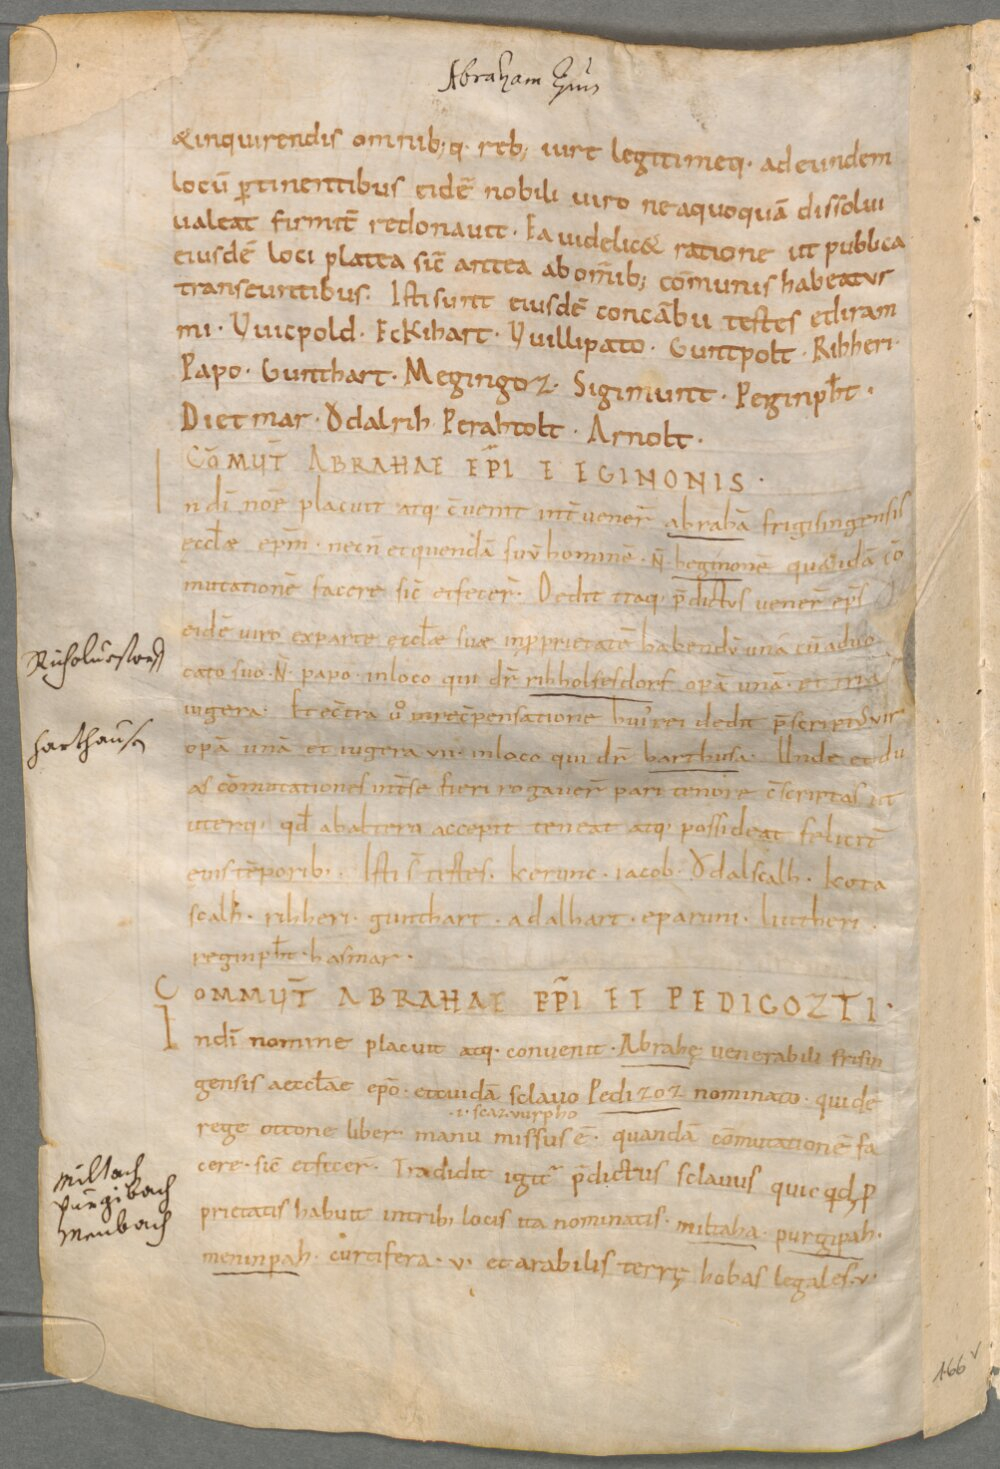 Abraham
&inquirendis omnib; q· reb; iure legitimeq· adeundem
locū ꝑtinentibus eidē nobili uiro neaquoquā dissolui
ualeat firmit̄ redonauit · Ea uidelic& ratione ut publica
eiusdē loci platea sic̄ antea ab om̄ib; cōmunis habeatur
transeuntibus. Isti sunt eiusdē concābii testes ediram
mi · Vuicpold · Eckihart · Vuillipato · Guntpolt · Rihheri·
Papo · Gunthart · Megingoz · Sigimunt · Peginpħt ·
Dietmar · Ǒdalrih · Perahtolt · Arnolt ·
COMMUT̄ ABRAHAE EP̄I E EGINONIS ·
In dī nōe placuit atq· c̄uenit int̄ vener̄ abrahā frigisingensis
ęccłae ep̄m · necn̄ et quendā suū hominē · N̄ · heginonē quandā cō
mutationē facere sic̄ et fecer̄ · Dedit itaq· p̄dictus vener̄ ep̄s
eidē uiro ex parte ęccłae suae in ꝓprietatē habendū unā cū aduo
cato suo · N̄ · papo · in loco qui dr̄ rihholfesdorf opā unā · et tria
iugera · Et ec̄tra ů in rec̄pensatione hui' rei dedit p̄scriptus uir
opā unā et iugera vii · in loco qui dr̄ harthusa · Unde et du
as cōmutationes int̄ se fieri rogauer̄ pari tenore c̄scriptas ut
uterq· qđ ab altero accepit teneat atq· possideat felicit̄
ęuis tēporib· · Isti s̄ testes · kerunc · iacob · Ǒdalscalh · kota
scalh · rihheri · gunthart · adalhart · eparuni · liutheri ·
reginpħt · hasmar ·
COMMUT̄ ABRAHAE EP̄I ET PEDIGOZTI ·
In dī nomine placuit atq· convenit · Abrahę venerabili frisin
gensis aeccłae ep̄o · et cuidā sclauo Pedizoz nominato · qui de
·i· scaz vurpho
rege ottone liber manu missus ē · quandā cōmutationē fa
cere · sic̄ et fecer̄ · Tradidit igit̄ p̄dictus sclavus quicqđ ꝓ
prietatis habuit in trib; locis ita nominatis · miltaha · purgipah ·
meninpah · curtifera · v · et arabilis terrę hobas legales · v ·
Harthausen
Miltach
Purgibach
Menbach
166v